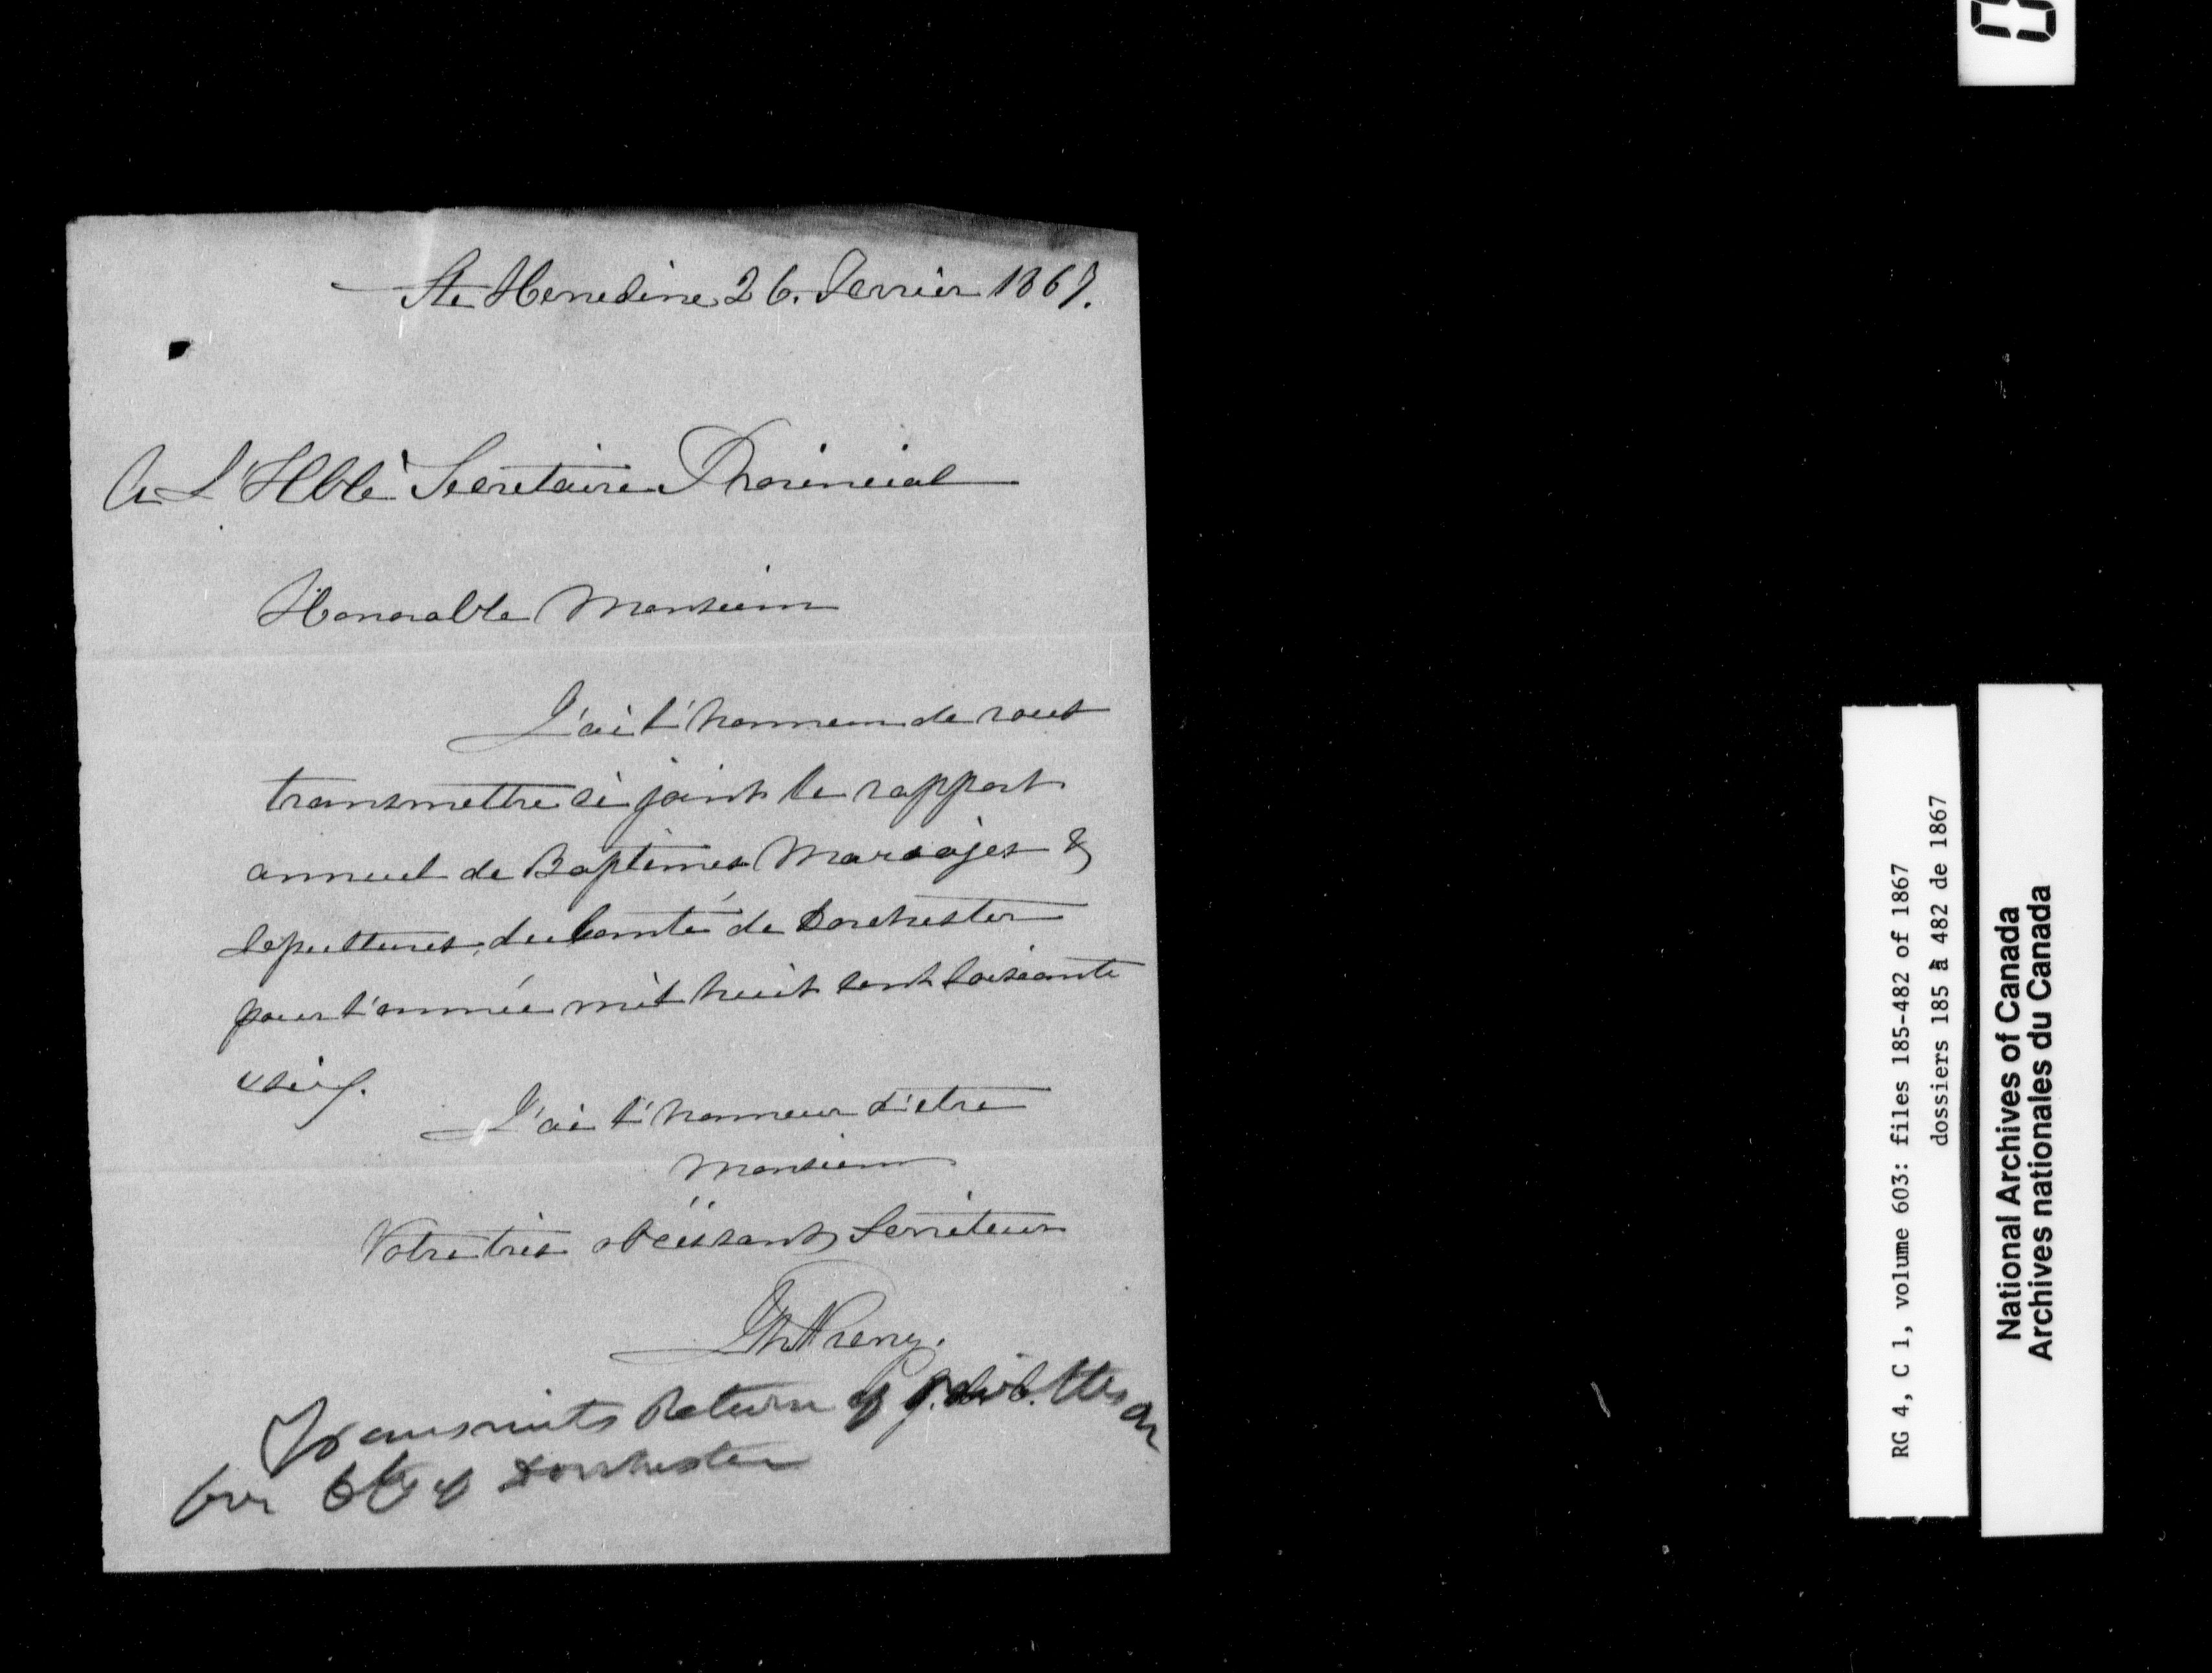 Ste Henedine 26. Fevrier 1867.
A L'Hble Secretaire Provincial
Honorable Monsieur
J'ai l'honneur de vous
transmettre ci joint le rapport
annuel de Baptêmes Mariages &
Sepultures, du Comté de Dorchester
pour l'année mil huit cent soisante
J'ai l'honneur d'etre
Monsieur
Votre très obéissant Serviteur
Transmits Return of
for Cty of Dorchester
RG 4, C 1, volume 603: files 185-482 of 1867
dossiers 185 à 482 de 1867
National Archives of Canada
Archives nationales du Canada